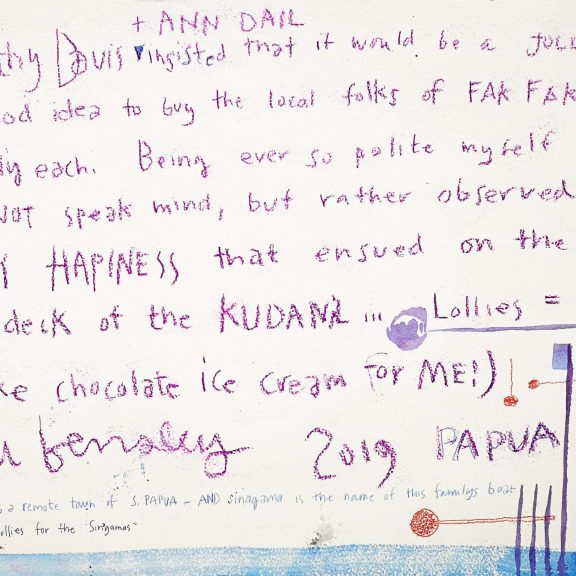 + ANN DAIL
thy Davis insisted that it would be a JOLL
od idea to buy the local folks of FAK FAK
ly each. Being ever so polite myself
NOT speak mind, but rather observed
Y HAPINESS that ensued on the
deck of the KUDANIL ... Lollies =
ke chocolate ice cream for ME!)
2019 PAPUA
s a remote town of S. PAPUA - AND Sinagama is the name of this familys boat
ollies for the "Sinagamas"